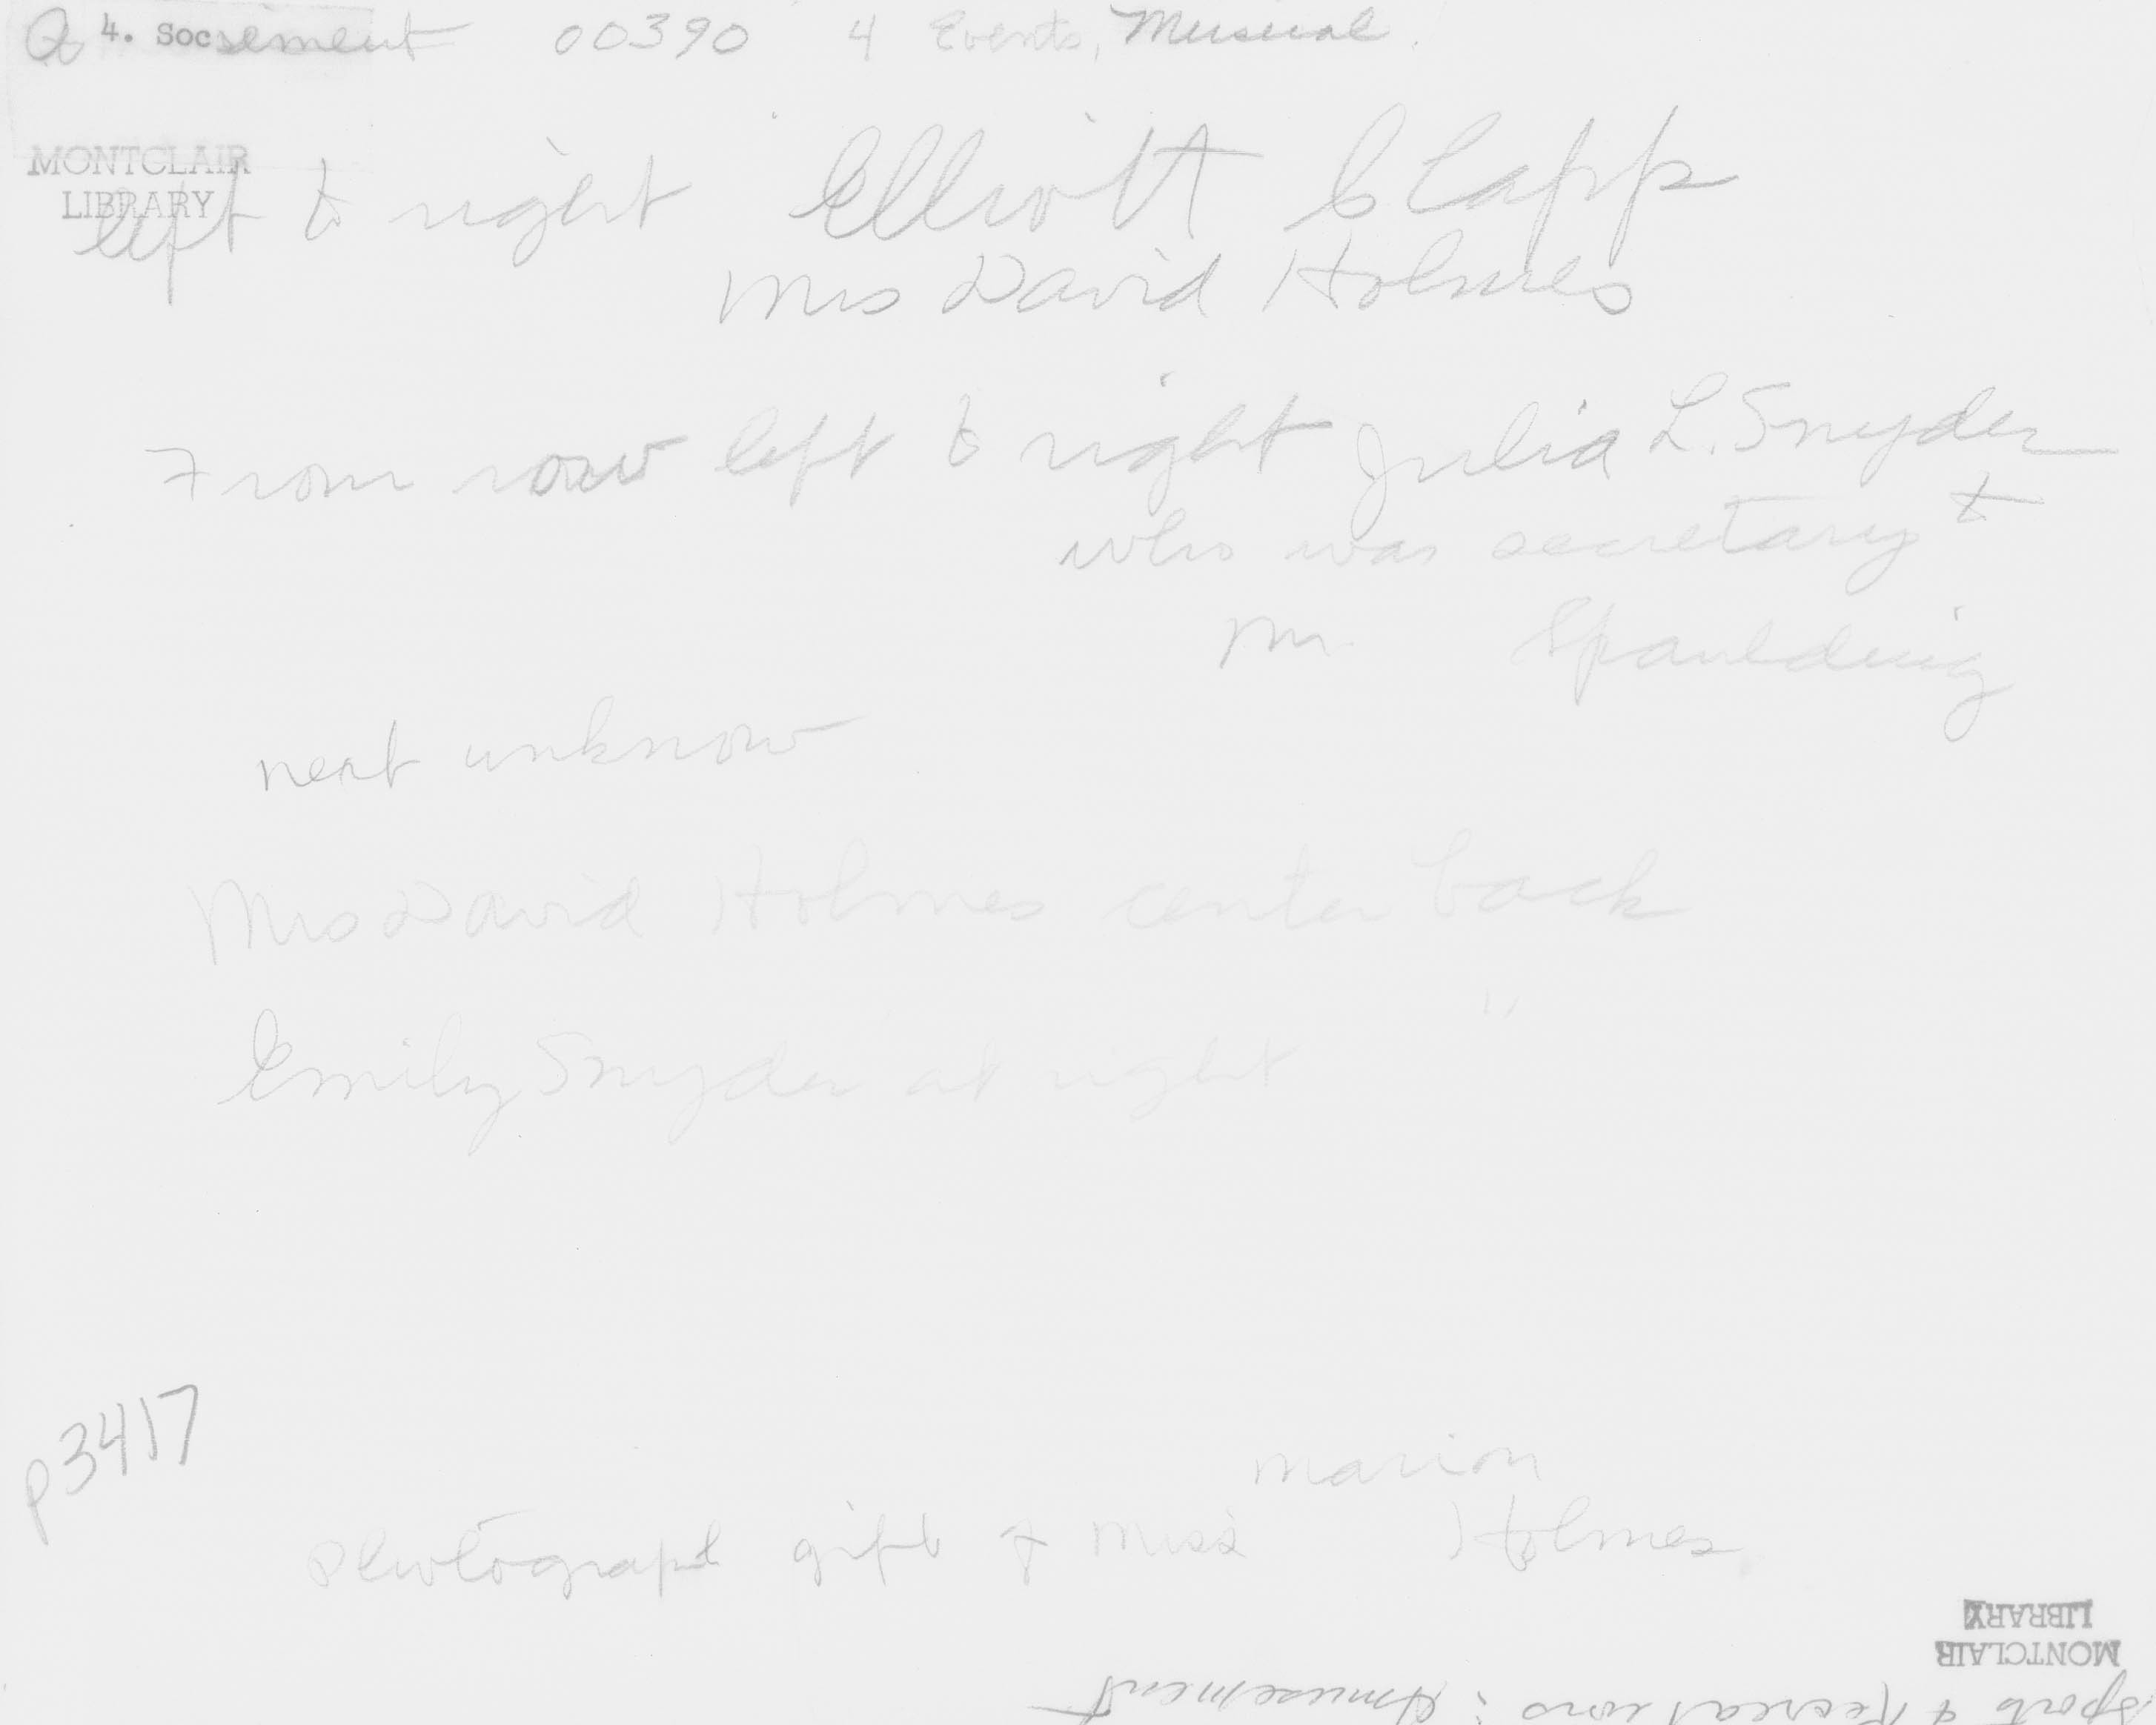 4. Soc sement 00390 4 Events, Musical
MONTCLAIR
LIBRARY
left to right Elliott Clapp
Mrs David Holmes
From row left to right Julia L. Snyder
who was secretary to
Mr. Spaulding
next unknow
Mrs David Holmes center back
Emily Snyder at right "
p3417
Marion
Photograph gift of Miss Holmes
MONTCLAIR
LIBRARY
Sports & Recreations : Amusement